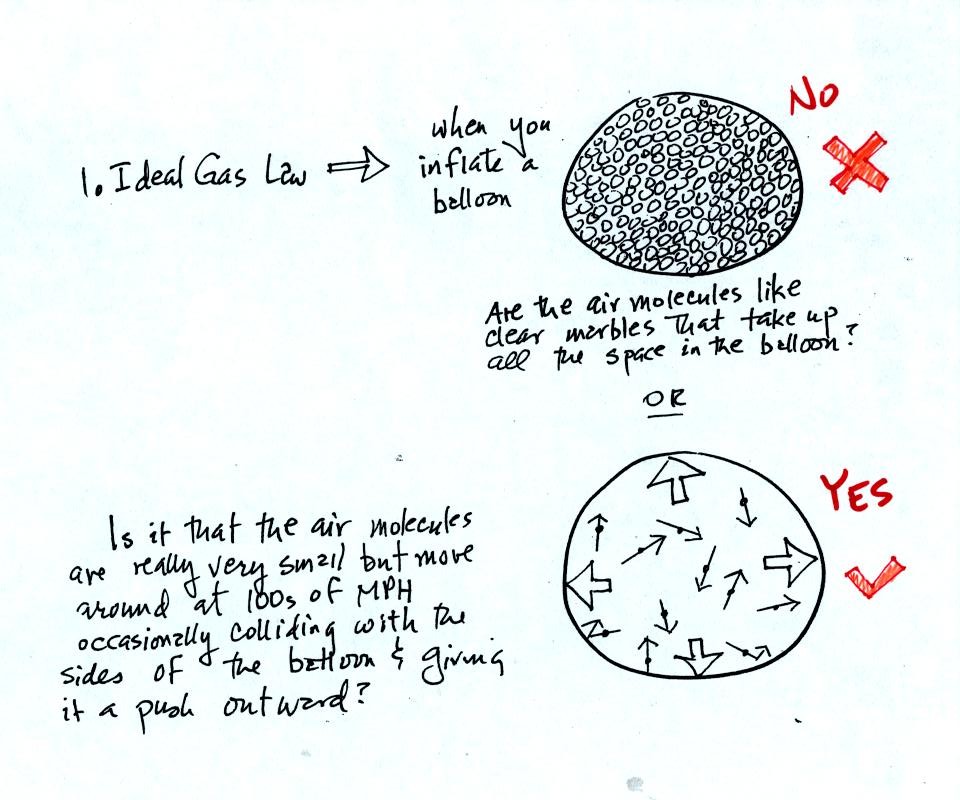 1. Ideal Gas Law
when you
inflate a
balloon
NO
Are the air molecules like
clear marbles that take up
all the space in the balloon?
OR
YES
Is it that the air molecules
are really very small but move
around at 100s of MPH
occasionally colliding with the
sides of the balloon & giving
it a push outward?